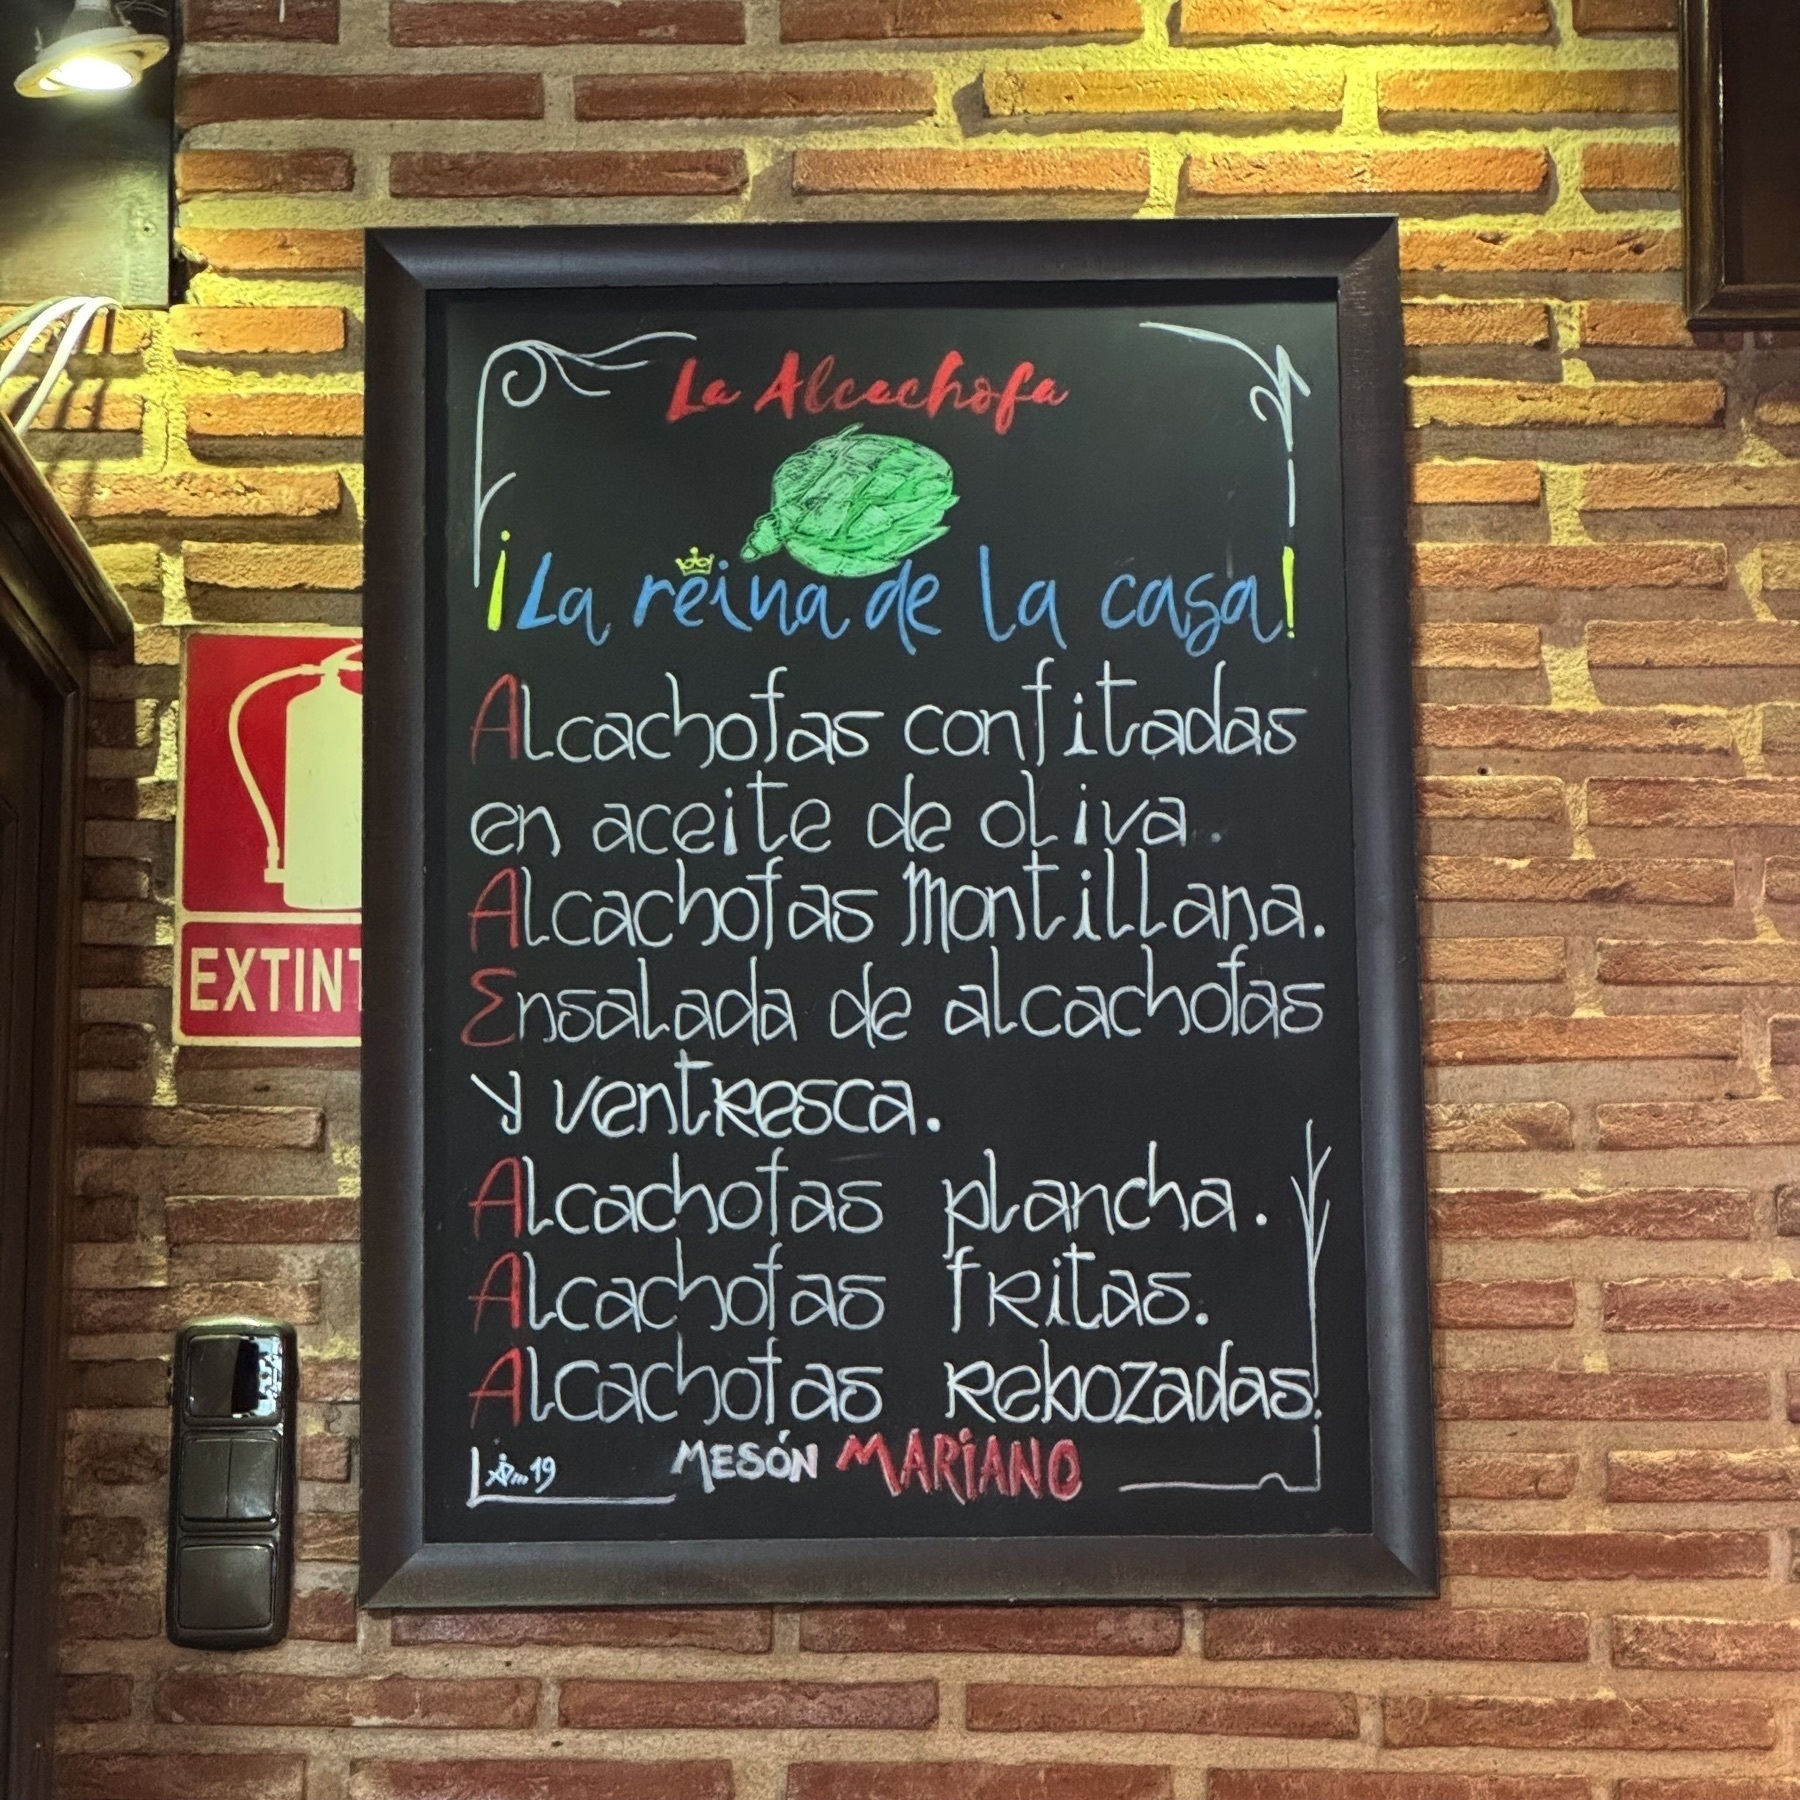 La Alcachofa
¡La reina de la casa!
Alcachofas confitadas
en aceite de oliva.
Alcachofas Montillana.
Ensalada de alcachofas
y ventresca.
Alcachofas plancha.
Alcachofas fritas.
Alcachofas rebozadas.
MESÓN MARIANO
19
EXTINT